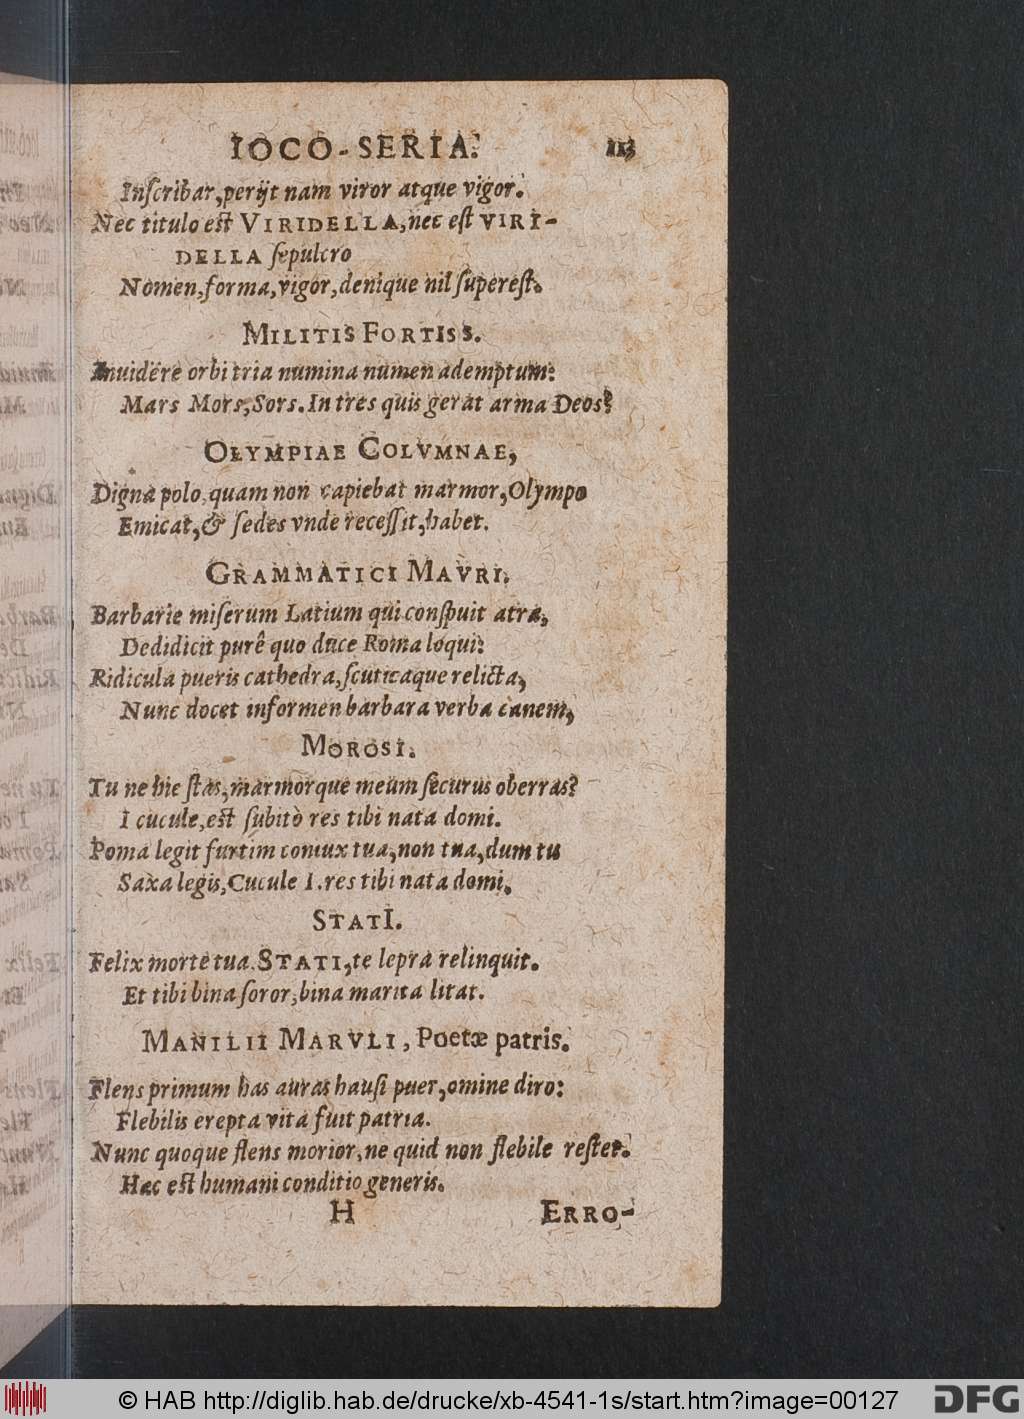 IOCO-SERIA. 113
Inſcribar, perijt nam viror atque vigor.
Nec titulo eſt VIRIDELLA, nec eſt VIRI-
DELLA ſepulcro
Nomen, forma, vigor, denique nil ſupereſt.
MILITIS FORTISS.
Inuidêre orbi tria numina numen ademptum:
Mars Mors, Sors. In tres quis gerat arma Deos?
OLYMPIAE COLVMNAE,
Digna polo, quam non capiebat marmor, Olympo
Emicat, & ſedes vnde receſſit, habet.
GRAMMATICI MAVRI.
Barbarie miſerum Latium qui conſpuit atra,
Dedidicit purê quo duce Roma loqui:
Ridicula pueris cathedra, ſcuticaque relicta,
Nunc docet informen barbara verba canem,
MOROSI.
Tu ne hic ſtas, marmorque meum ſecurus oberras?
I cucule, eſt ſubitò res tibi nata domi.
Poma legit furtim coniux tua, non tua, dum tu
Saxa legis, Cucule I. res tibi nata domi.
STATI.
Felix morte tua. STATI, te lepra relinquit.
Et tibi bina ſoror, bina marita litat.
MANILII MARVLI, Poetæ patris.
Flens primum has auras hauſi puer, omine diro:
Flebilis erepta vita fuit patria.
Nunc quoque flens morior, ne quid non flebile reſtet.
Hac eſt humani conditio generis.
H ERRO-
© HAB http://diglib.hab.de/drucke/xb-4541-1s/start.htm?image=00127 DFG